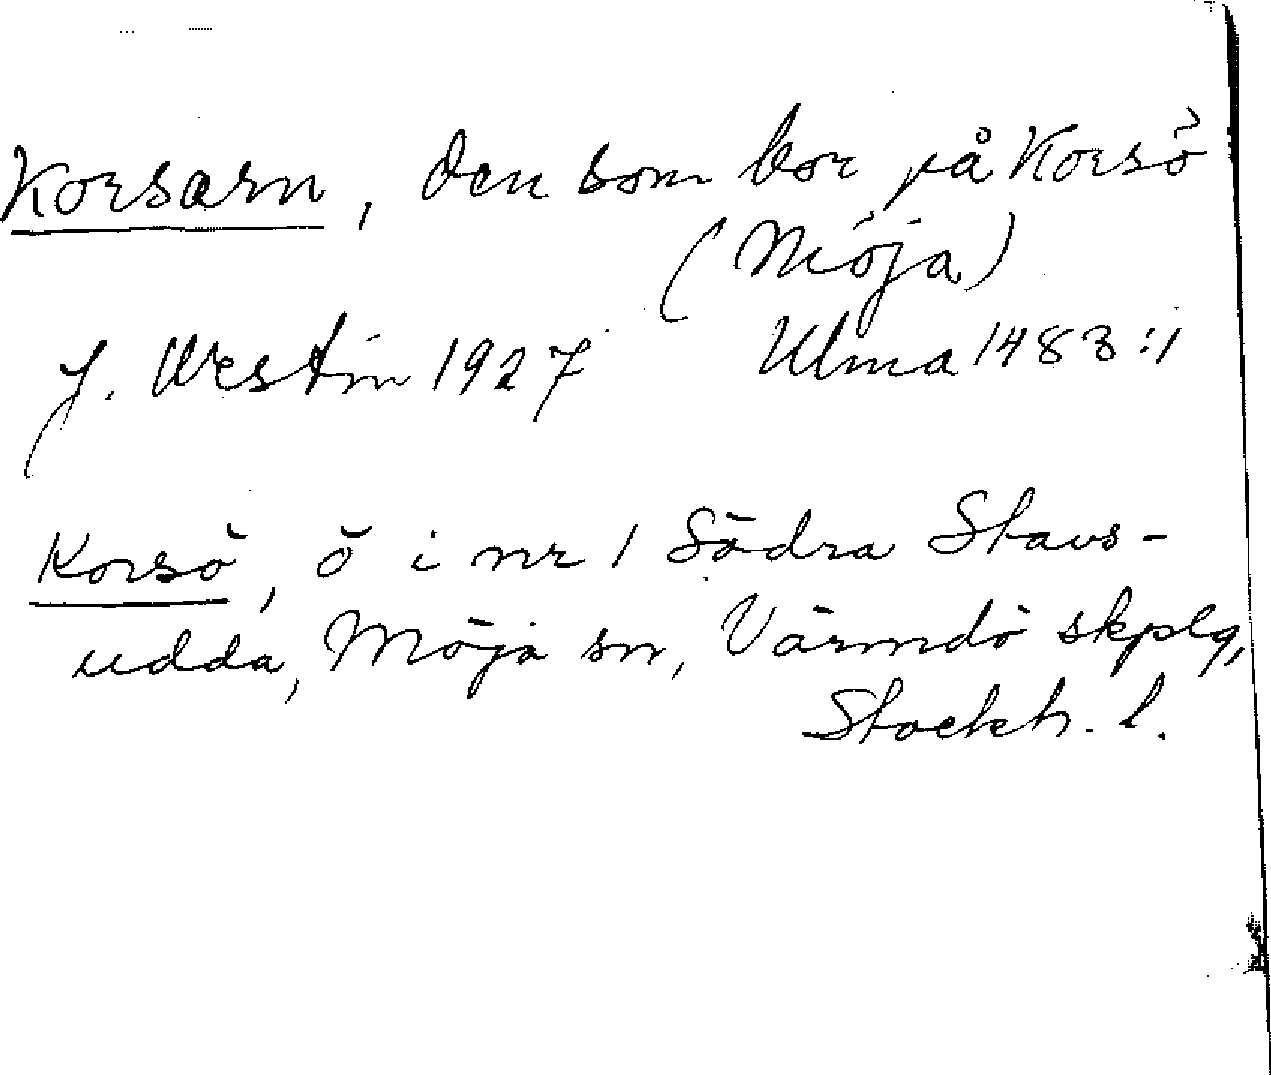 Korsarn, den som bor på Korsö
(Möja)
J. Westin 1927 Ulma 1483:1
Korsö, ö i nr 1 Södra Stavs-
udda, Möja sn, Värmdö skplg,
Stockh. l.